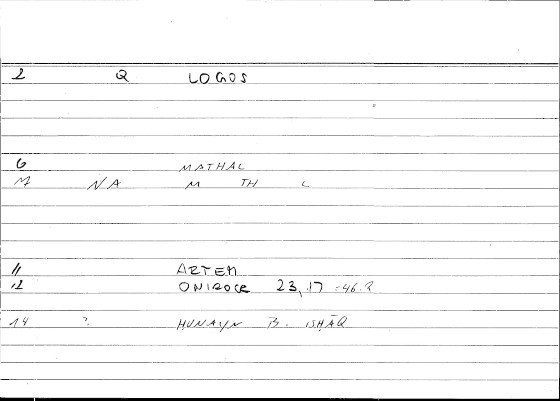 2 Q LOGOS
6 MATHAL
M NA M TH L
11 ARTEM
12 ONIROCR 23,17 =46.2
14 ? HUNAYN B. ISHĀQ